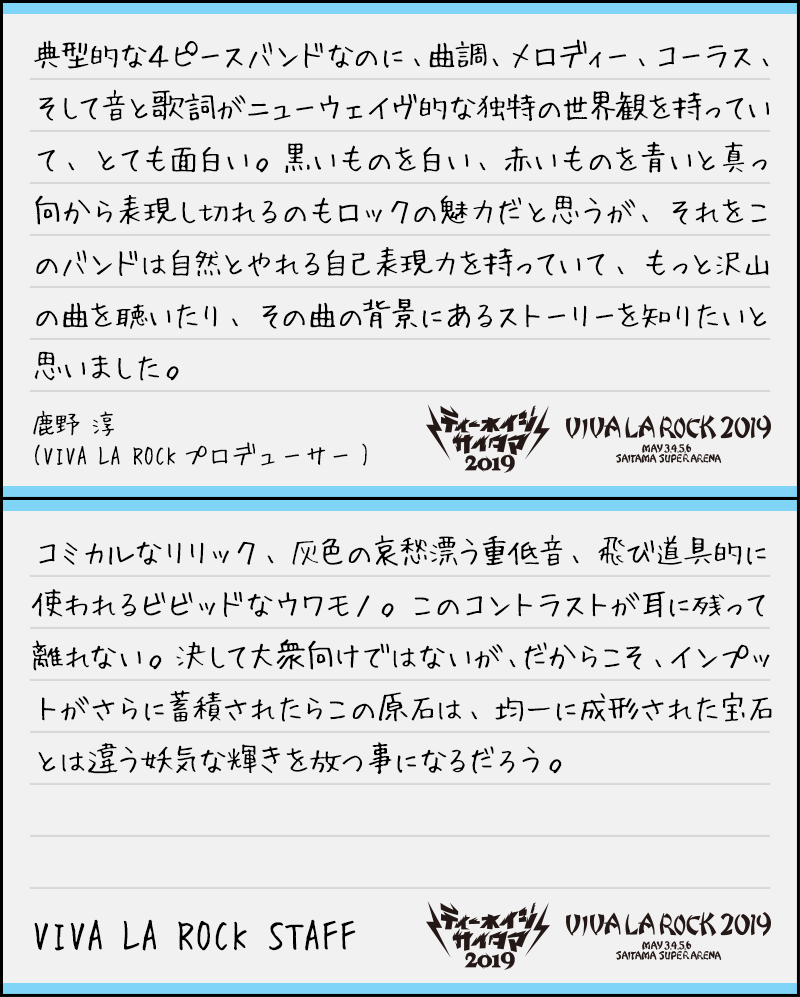 典型的な4ピースバンドなのに、曲調、メロディー、コーラス、
そして音と歌詞がニューウェイヴ的な独特の世界観を持ってい
て、とても面白い。黒いものを白い、赤いものを青いと真っ
向から表現し切れるのもロックの魅力だと思うが、それをこ
のバンドは自然とやれる自己表現力を持っていて、もっと沢山
の曲を聴いたり、その曲の背景にあるストーリーを知りたいと
思いました。
鹿野 淳
(VIVA LA ROCK プロデューサー)
ティーネイジ
サイタマ
2019
VIVA LA ROCK 2019
MAY 3.4.5.6
SAITAMA SUPER ARENA
コミカルなリリック、灰色の哀愁漂う重低音、飛び道具的に
使われるビビッドなウワモノ。このコントラストが耳に残って
離れない。決して大衆向けではないが、だからこそ、インプッ
トがさらに蓄積されたらこの原石は、均一に成形された宝石
とは違う妖気な輝きを放つ事になるだろう。
VIVA LA ROCK STAFF
ティーネイジ
サイタマ
2019
VIVA LA ROCK 2019
MAY 3.4.5.6
SAITAMA SUPER ARENA